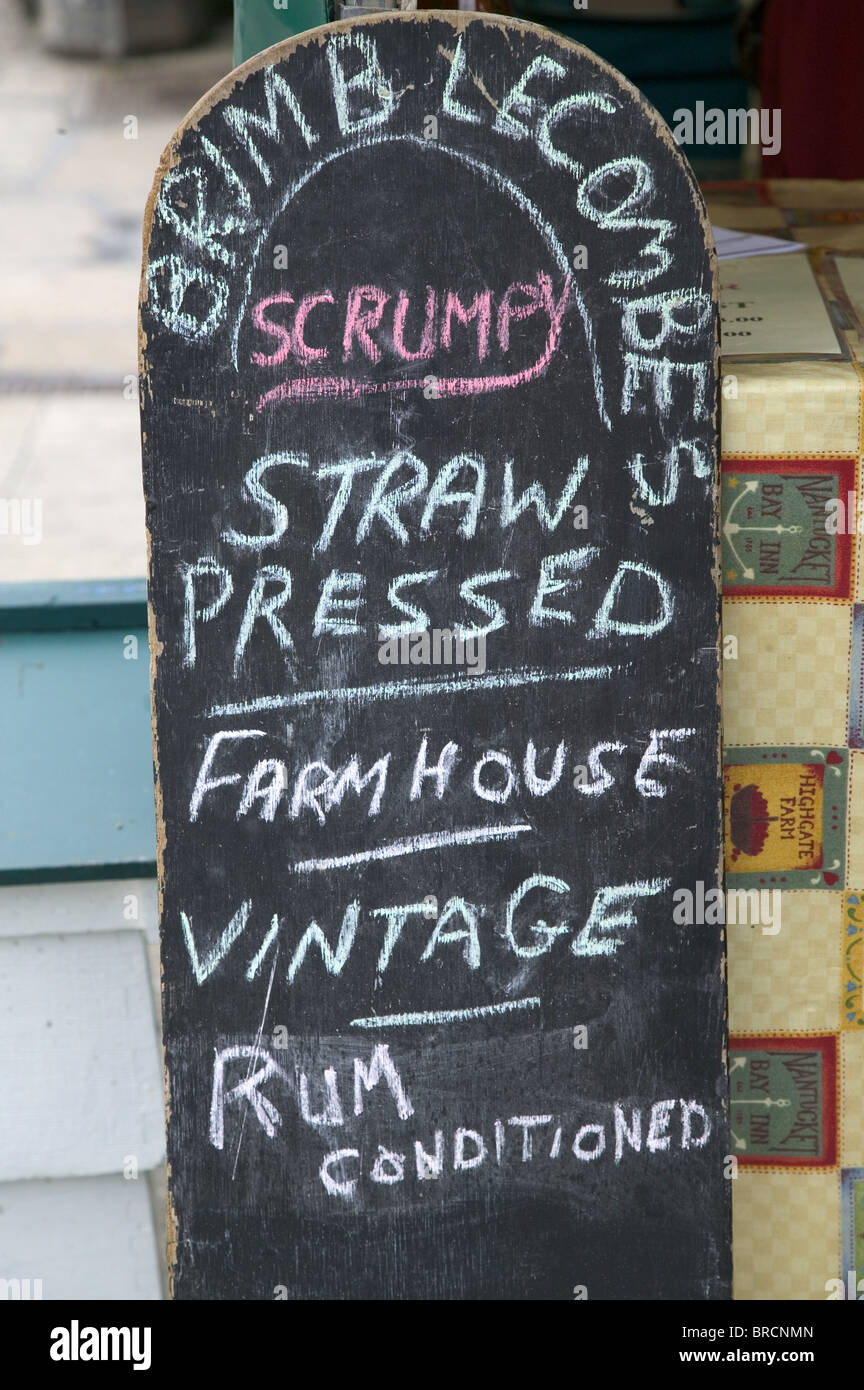 BRIMBLECOMBES
SCRUMPY
STRAW
PRESSED
FARMHOUSE
VINTAGE
RUM
CONDITIONED
NANTUCKET
BAY INN
HIGHGATE
FARM
NANTUCKET
BAY INN
alamy
Image ID: BRCNMN
www.alamy.com